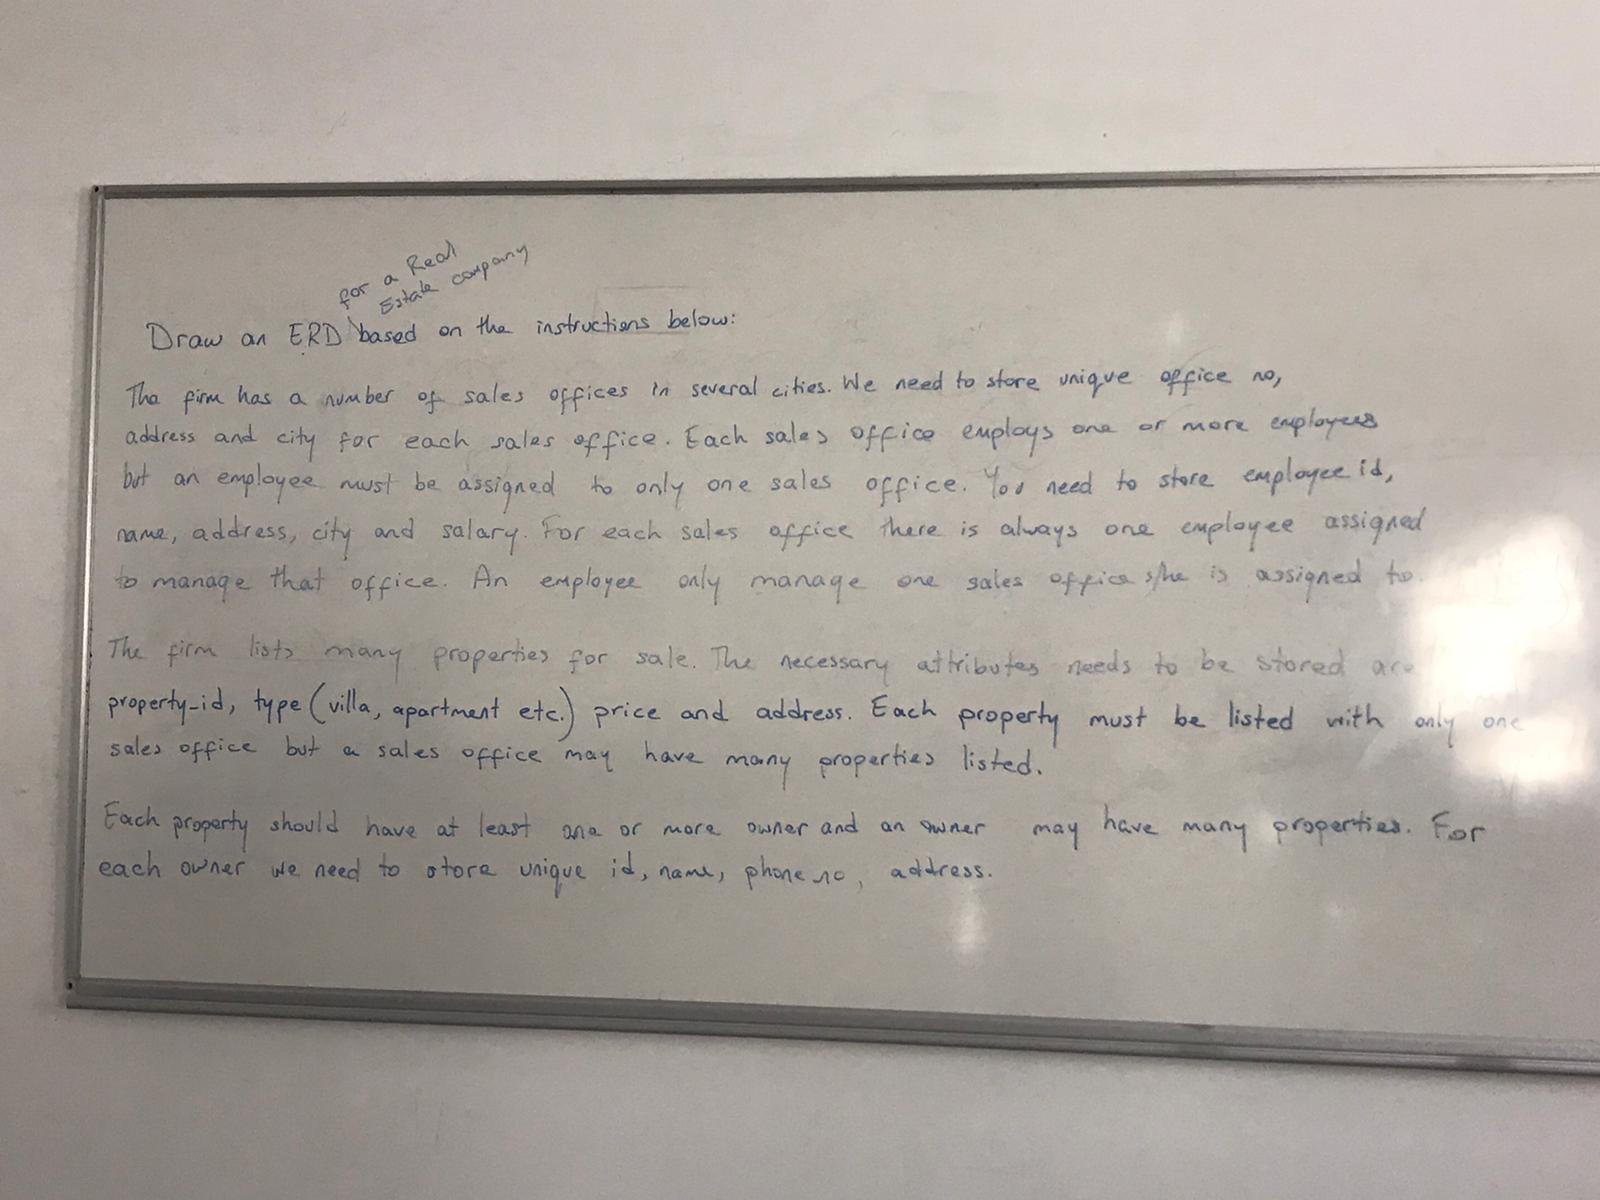 for a Real
Estate company
Draw an ERD based on the instructions below:
The firm has a number of sales offices in several cities. We need to store unique office no,
address and city for each sales office. Each sales office employs one or more employees
but an employee must be assigned to only one sales office. You need to store employee id,
name, address, city and salary. For each sales office there is always one employee assigned
to manage that office. An employee only manage one sales office s/he is assigned to.
The firm lists many properties for sale. The necessary attributes needs to be stored are
property_id, type (villa, apartment etc.) price and address. Each property must be listed with only one
sales office but a sales office may have many properties listed.
Each property should have at least one or more owner and an owner may have many properties. For
each owner we need to store unique id, name, phone no, address.